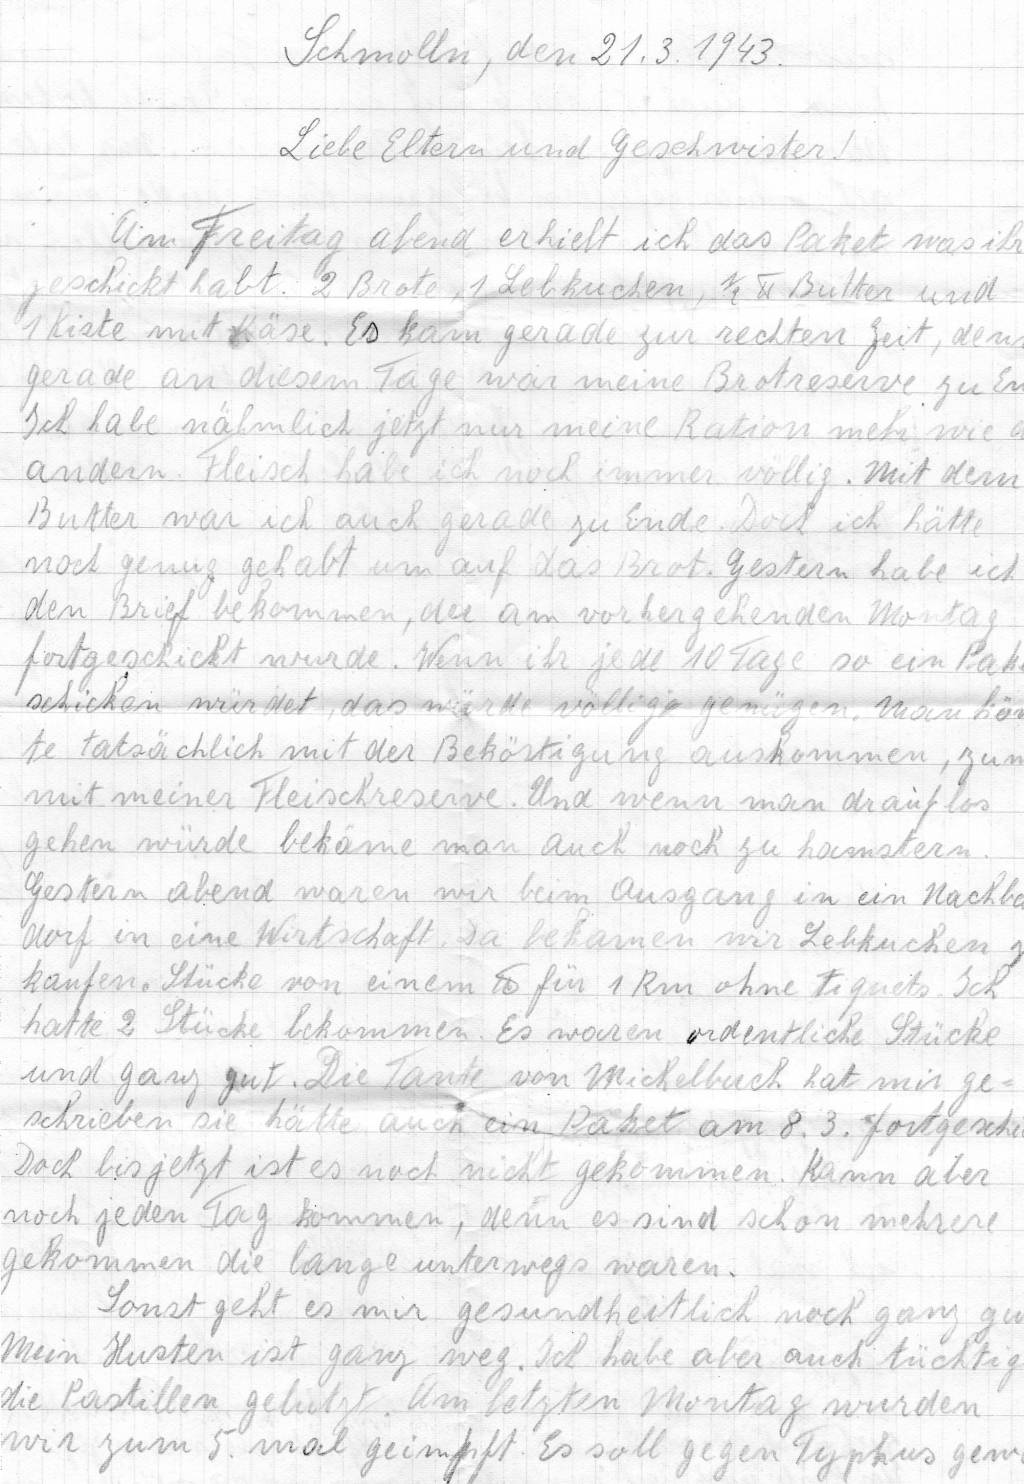 Schmolln, den 21.3.1943.
Liebe Eltern und Geschwister!
Am Freitag abend erhielt ich das Paket was ihr
geschickt habt. 2 Brote, 1 Lebkuchen, ½ ℔ Butter und
1 Kiste mit Käse. Es kam gerade zur rechten Zeit, denn
gerade an diesem Tage war meine Brotreserve zu En
Ich habe nähmlich jetzt nur meine Ration mehr wie
andern. Fleisch habe ich noch immer völlig. Mit dem
Butter war ich auch gerade zu Ende. Doch ich hätte
noch genug gehabt um auf das Brot. Gestern habe ich
den Brief bekommen, der am vorhergehenden Montag
fortgeschickt wurde. Wenn ihr jede 10 Tage so ein Pake
schicken würdet, das würde völlig genügen. Man kön
te tatsächlich mit der Beköstigung auskommen, zum
mit meiner Fleischreserve. Und wenn man drauf los
gehen würde bekäme man auch noch zu hamstern.
Gestern abend waren wir beim Ausgang in ein Nachba
dorf in eine Wirtschaft. Da bekamen wir Lebkuchen z
kaufen. Stücke von einem ℔ für 1 Rm ohne Tiquets. Ich
hatte 2 Stücke bekommen. Es waren ordentliche Stücke
und ganz gut. Die Tante von Michelbuch hat mir ge=
schrieben sie hätte auch ein Paket am 8. 3. fortgeschi
Doch bis jetzt ist es noch nicht gekommen. Kann aber
noch jeden Tag kommen, denn es sind schon mehrere
gekommen die lange unterwegs waren.
Sonst geht es mir gesundheitlich noch ganz gu
Mein Husten ist ganz weg. Ich habe aber auch tüchtig
die Pastillen gelutzt. Am letzten Montag wurden
wir zum 5. mal geimpft. Es soll gegen Typhus gew